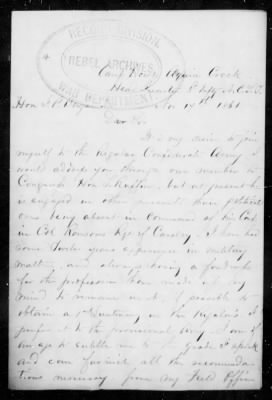 RECORD DIVISION
REBEL ARCHIVES
WAR DEPARTMENT
Camp Creek
Head Quarters N.C.
Hon J. P. Nov 17th 1861
Dear Sir
It is my desire to join
myself to the Regular Confederate Army. I
would address you through our member in
Congress Hon but at present he
is engaged in other pursuits than
ones being absent in Command of his Co
in Col Ransoms Regt of Cavalry. I have had
some years experience in military
matters, and always having a fondness
for the profession have made up my
mind to remain in it, if possible to
obtain a in the regulars I
prefer it to the provisional Army I am of
an age to entitle me to the grade I
and can furnish all the recommenda
tions necessary from my Field Officers